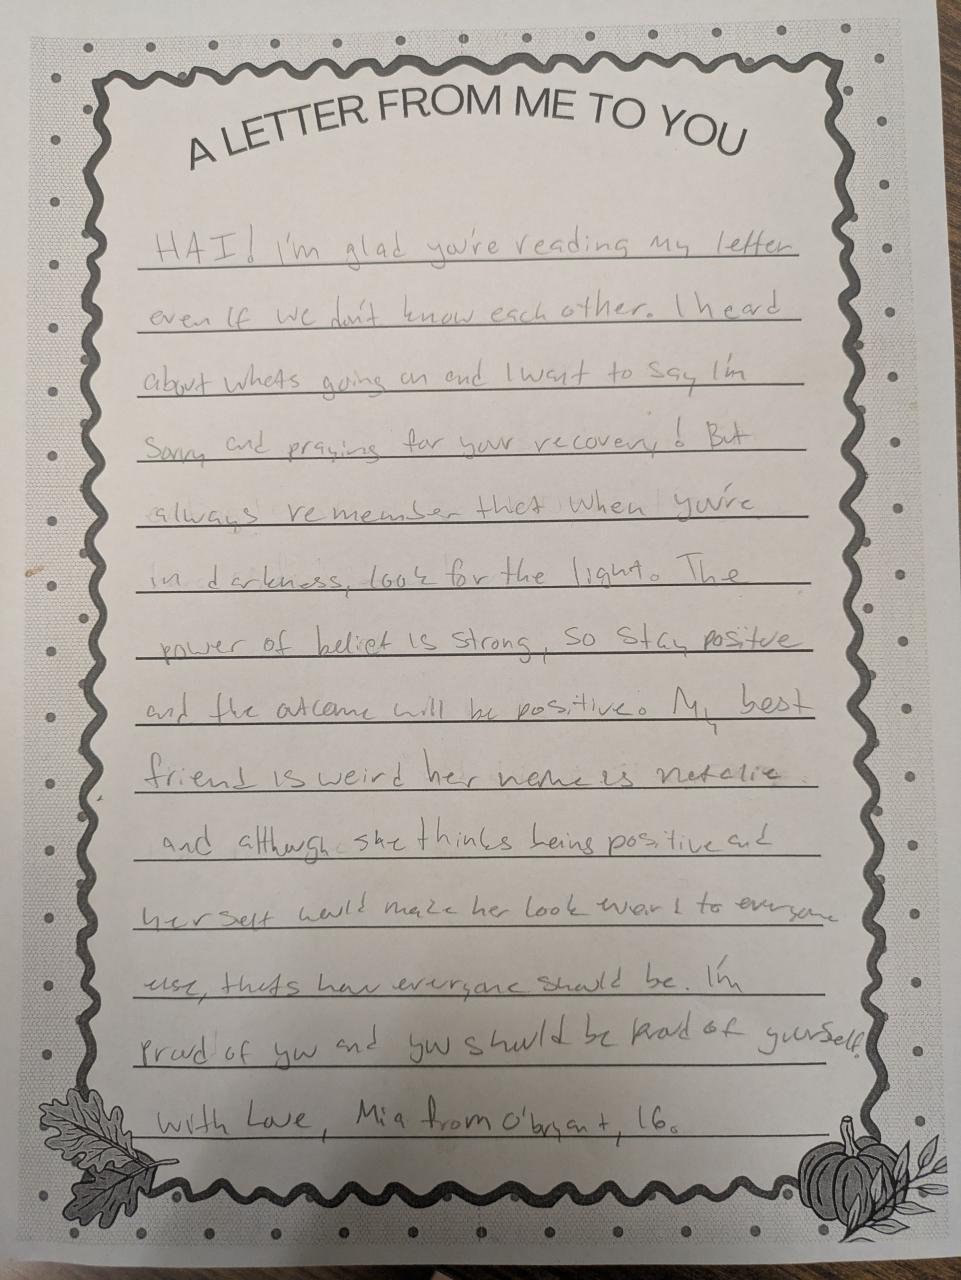 A LETTER FROM ME TO YOU
HAI! I'm glad you're reading my letter
even if we don't know each other. I heard
about whats going on and I want to say I'm
sorry and praying for your recovery! But
always remember that when you're
in darkness, look for the light. The
power of belief is strong, so stay positve
and the outcome will be positive. My best
friend is weird her name is natalie
and although she thinks being positive and
herself would make her look weird to everyone
else, thats how everyone should be. I'm
proud of you and you should be proud of yourself.
With Love, Mia from O'bryant, 16.